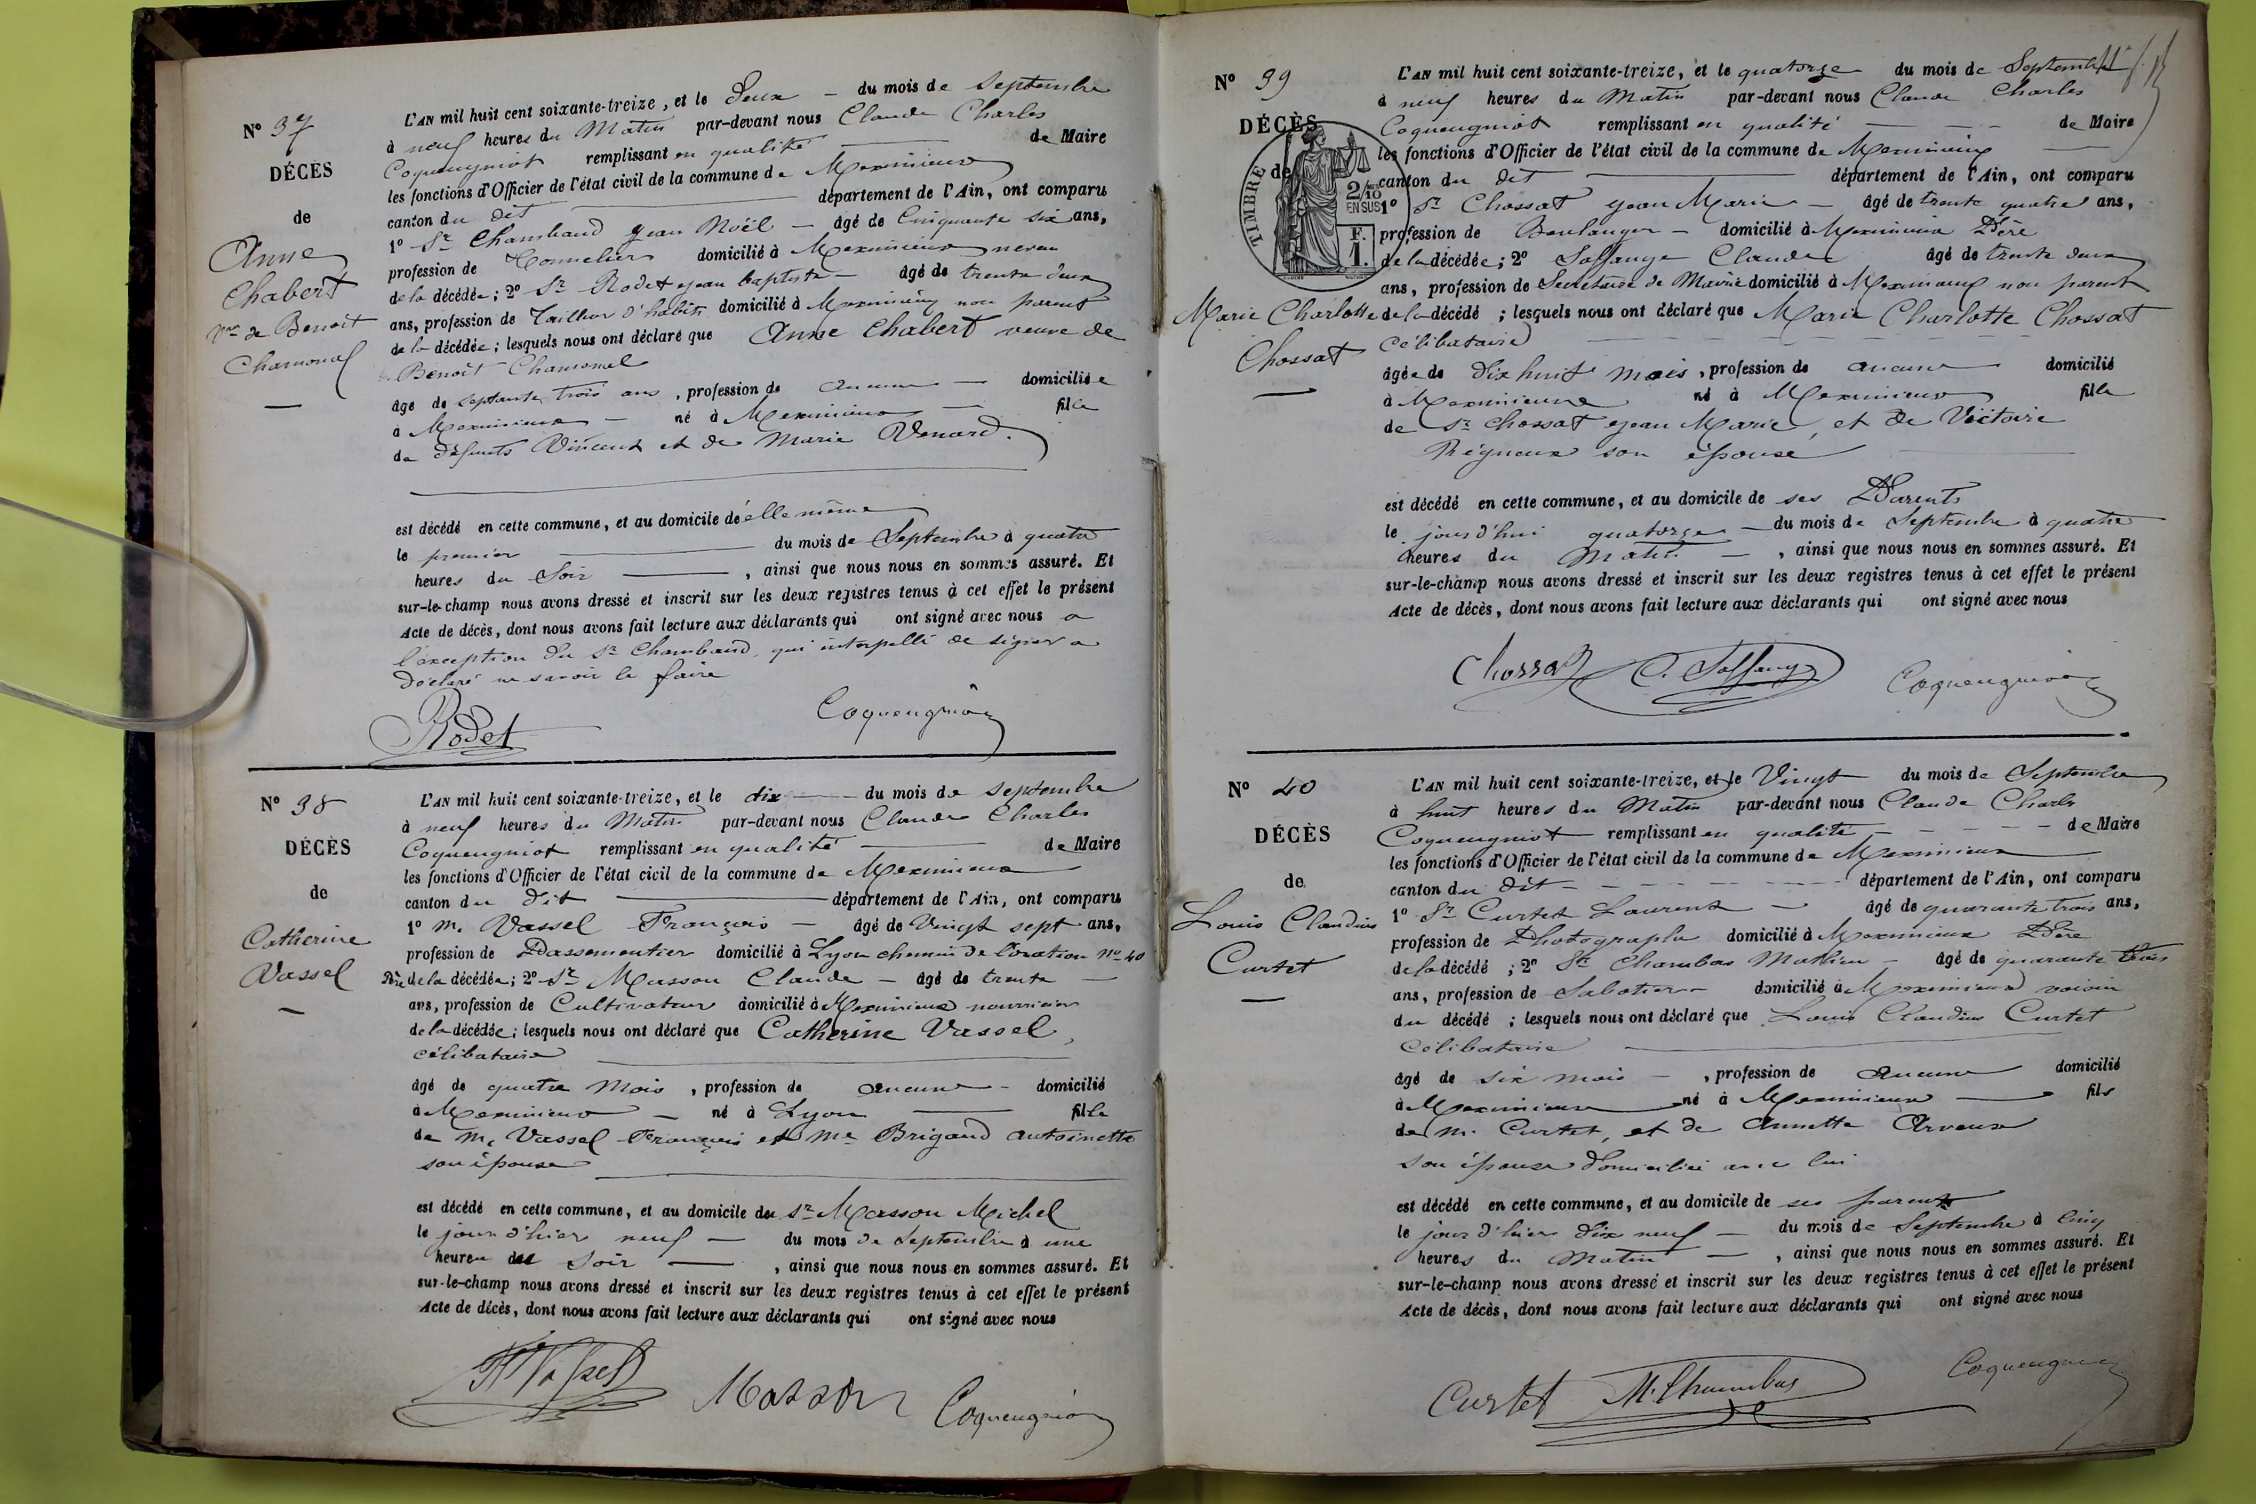 N° 37
DÉCÈS
de
Anne
Chabert
Vve de Benoit
Chamonal
L'AN mil huit cent soixante-treize, et le Deux du mois de Septembre
à neuf heures du Matin par-devant nous Claude Charles
Coquengniot remplissant en qualité de Maire
les fonctions d'Officier de l'état civil de la commune de Meximieux
canton du dit département de l'Ain, ont comparu
1° Sr Chambaud Jean Noël âgé de Cinquante six ans,
profession de Tonnelier domicilié à Meximieux neveu
de la décédée; 2° Sr Rodet Jean Baptiste âgé de trente deux
ans, profession de Tailleur d'habits domicilié à Meximieux non parent
de la décédée; lesquels nous ont déclaré que Anne Chabert veuve de
Benoit Chamonal
âgé de septante trois ans, profession de aucune domiciliée
à Meximieux né à Meximieux fille
de défunts Vincent et de Marie Venard.
est décédé en cette commune, et au domicile de elle même
le premier du mois de Septembre à quatre
heures du Soir, ainsi que nous nous en sommes assuré. Et
sur-le-champ nous avons dressé et inscrit sur les deux registres tenus à cet effet le présent
Acte de décès, dont nous avons fait lecture aux déclarants qui ont signé avec nous a
l'exception du Sr Chambaud, qui interpellé de signer a
déclaré ne savoir le faire
Rodet Coquengniot
N° 38
DÉCÈS
de
Catherine
Vassel
L'AN mil huit cent soixante-treize, et le dix du mois de Septembre
à neuf heures du Matin par-devant nous Claude Charles
Coquengniot remplissant en qualité de Maire
les fonctions d'Officier de l'état civil de la commune de Meximieux
canton du dit département de l'Ain, ont comparu
1° M. Vassel François âgé de Vingt sept ans,
profession de Passementier domicilié à Lyon chemin de l'oration No 40
Père de la décédée; 2° Sr Masson Claude âgé de trente
ans, profession de Cultivateur domicilié à Meximieux nourricier
de la décédée; lesquels nous ont déclaré que Catherine Vassel,
célibataire
âgé de quatre Mois, profession de aucune domicilié
à Meximieux né à Lyon fille
de M. Vassel François et Me Brigand Antoinette
son épouse
est décédé en cette commune, et au domicile du Sr Masson Michel
le jour d'hier neuf du mois de Septembre à une
heure du Soir, ainsi que nous nous en sommes assuré. Et
sur-le-champ nous avons dressé et inscrit sur les deux registres tenus à cet effet le présent
Acte de décès, dont nous avons fait lecture aux déclarants qui ont signé avec nous
Vassel Masson Coquengniot
N° 39
DÉCÈS
de
TIMBRE
2/10
EN SUS
F.
1.
Marie Charlotte
Chossat
L'AN mil huit cent soixante-treize, et le quatorze du mois de Septembre
à neuf heures du Matin par-devant nous Claude Charles
Coquengniot remplissant en qualité de Maire
les fonctions d'Officier de l'état civil de la commune de Meximieux
canton du dit département de l'Ain, ont comparu
1° Sr Chossat Jean Marie âgé de trente quatre ans,
profession de Boulanger domicilié à Meximieux Père
de la décédée; 2° Soffange Claude âgé de trente deux
ans, profession de Secrétaire de Mairie domicilié à Meximieux non parent
de la décédé; lesquels nous ont déclaré que Marie Charlotte Chossat
Célibataire
âgée de dix huit mois, profession de aucune domicilié
à Meximieux né à Meximieux fille
de Sr Chossat Jean Marie, et de Victoire
Régneux son épouse
est décédé en cette commune, et au domicile de ses Parents
le jourd'hui quatorze du mois de Septembre à quatre
heures du Matin, ainsi que nous nous en sommes assuré. Et
sur-le-champ nous avons dressé et inscrit sur les deux registres tenus à cet effet le présent
Acte de décès, dont nous avons fait lecture aux déclarants qui ont signé avec nous
Chossat C. Soffange Coquengniot
N° 40
DÉCÈS
de
Louis Claudius
Curtet
L'AN mil huit cent soixante-treize, et le Vingt du mois de Septembre
à huit heures du Matin par-devant nous Claude Charles
Coquengniot remplissant en qualité de Maire
les fonctions d'Officier de l'état civil de la commune de Meximieux
canton du dit département de l'Ain, ont comparu
1° Sr Curtet Laurent âgé de quarante trois ans,
profession de Photographe domicilié à Meximieux Père
de la décédé; 2° Sr Chambas Mathieu âgé de quarante trois
ans, profession de Sabotier domicilié à Meximieux voisin
du décédé; lesquels nous ont déclaré que Louis Claudius Curtet
Célibataire
âgé de six mois, profession de aucune domicilié
à Meximieux né à Meximieux fils
de M. Curtet, et de Annette Arvoux
son épouse domiciliée avec lui
est décédé en cette commune, et au domicile de ses parents
le jour d'hier dix neuf du mois de Septembre à Cinq
heures du Matin, ainsi que nous nous en sommes assuré. Et
sur-le-champ nous avons dressé et inscrit sur les deux registres tenus à cet effet le présent
Acte de décès, dont nous avons fait lecture aux déclarants qui ont signé avec nous
Curtet M. Chambas Coquengniot